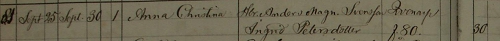 Sept 25 Sept 30 1 Anna Christina Anders Magn. Svensson
Ingrid Petersdotter 1,80. 30